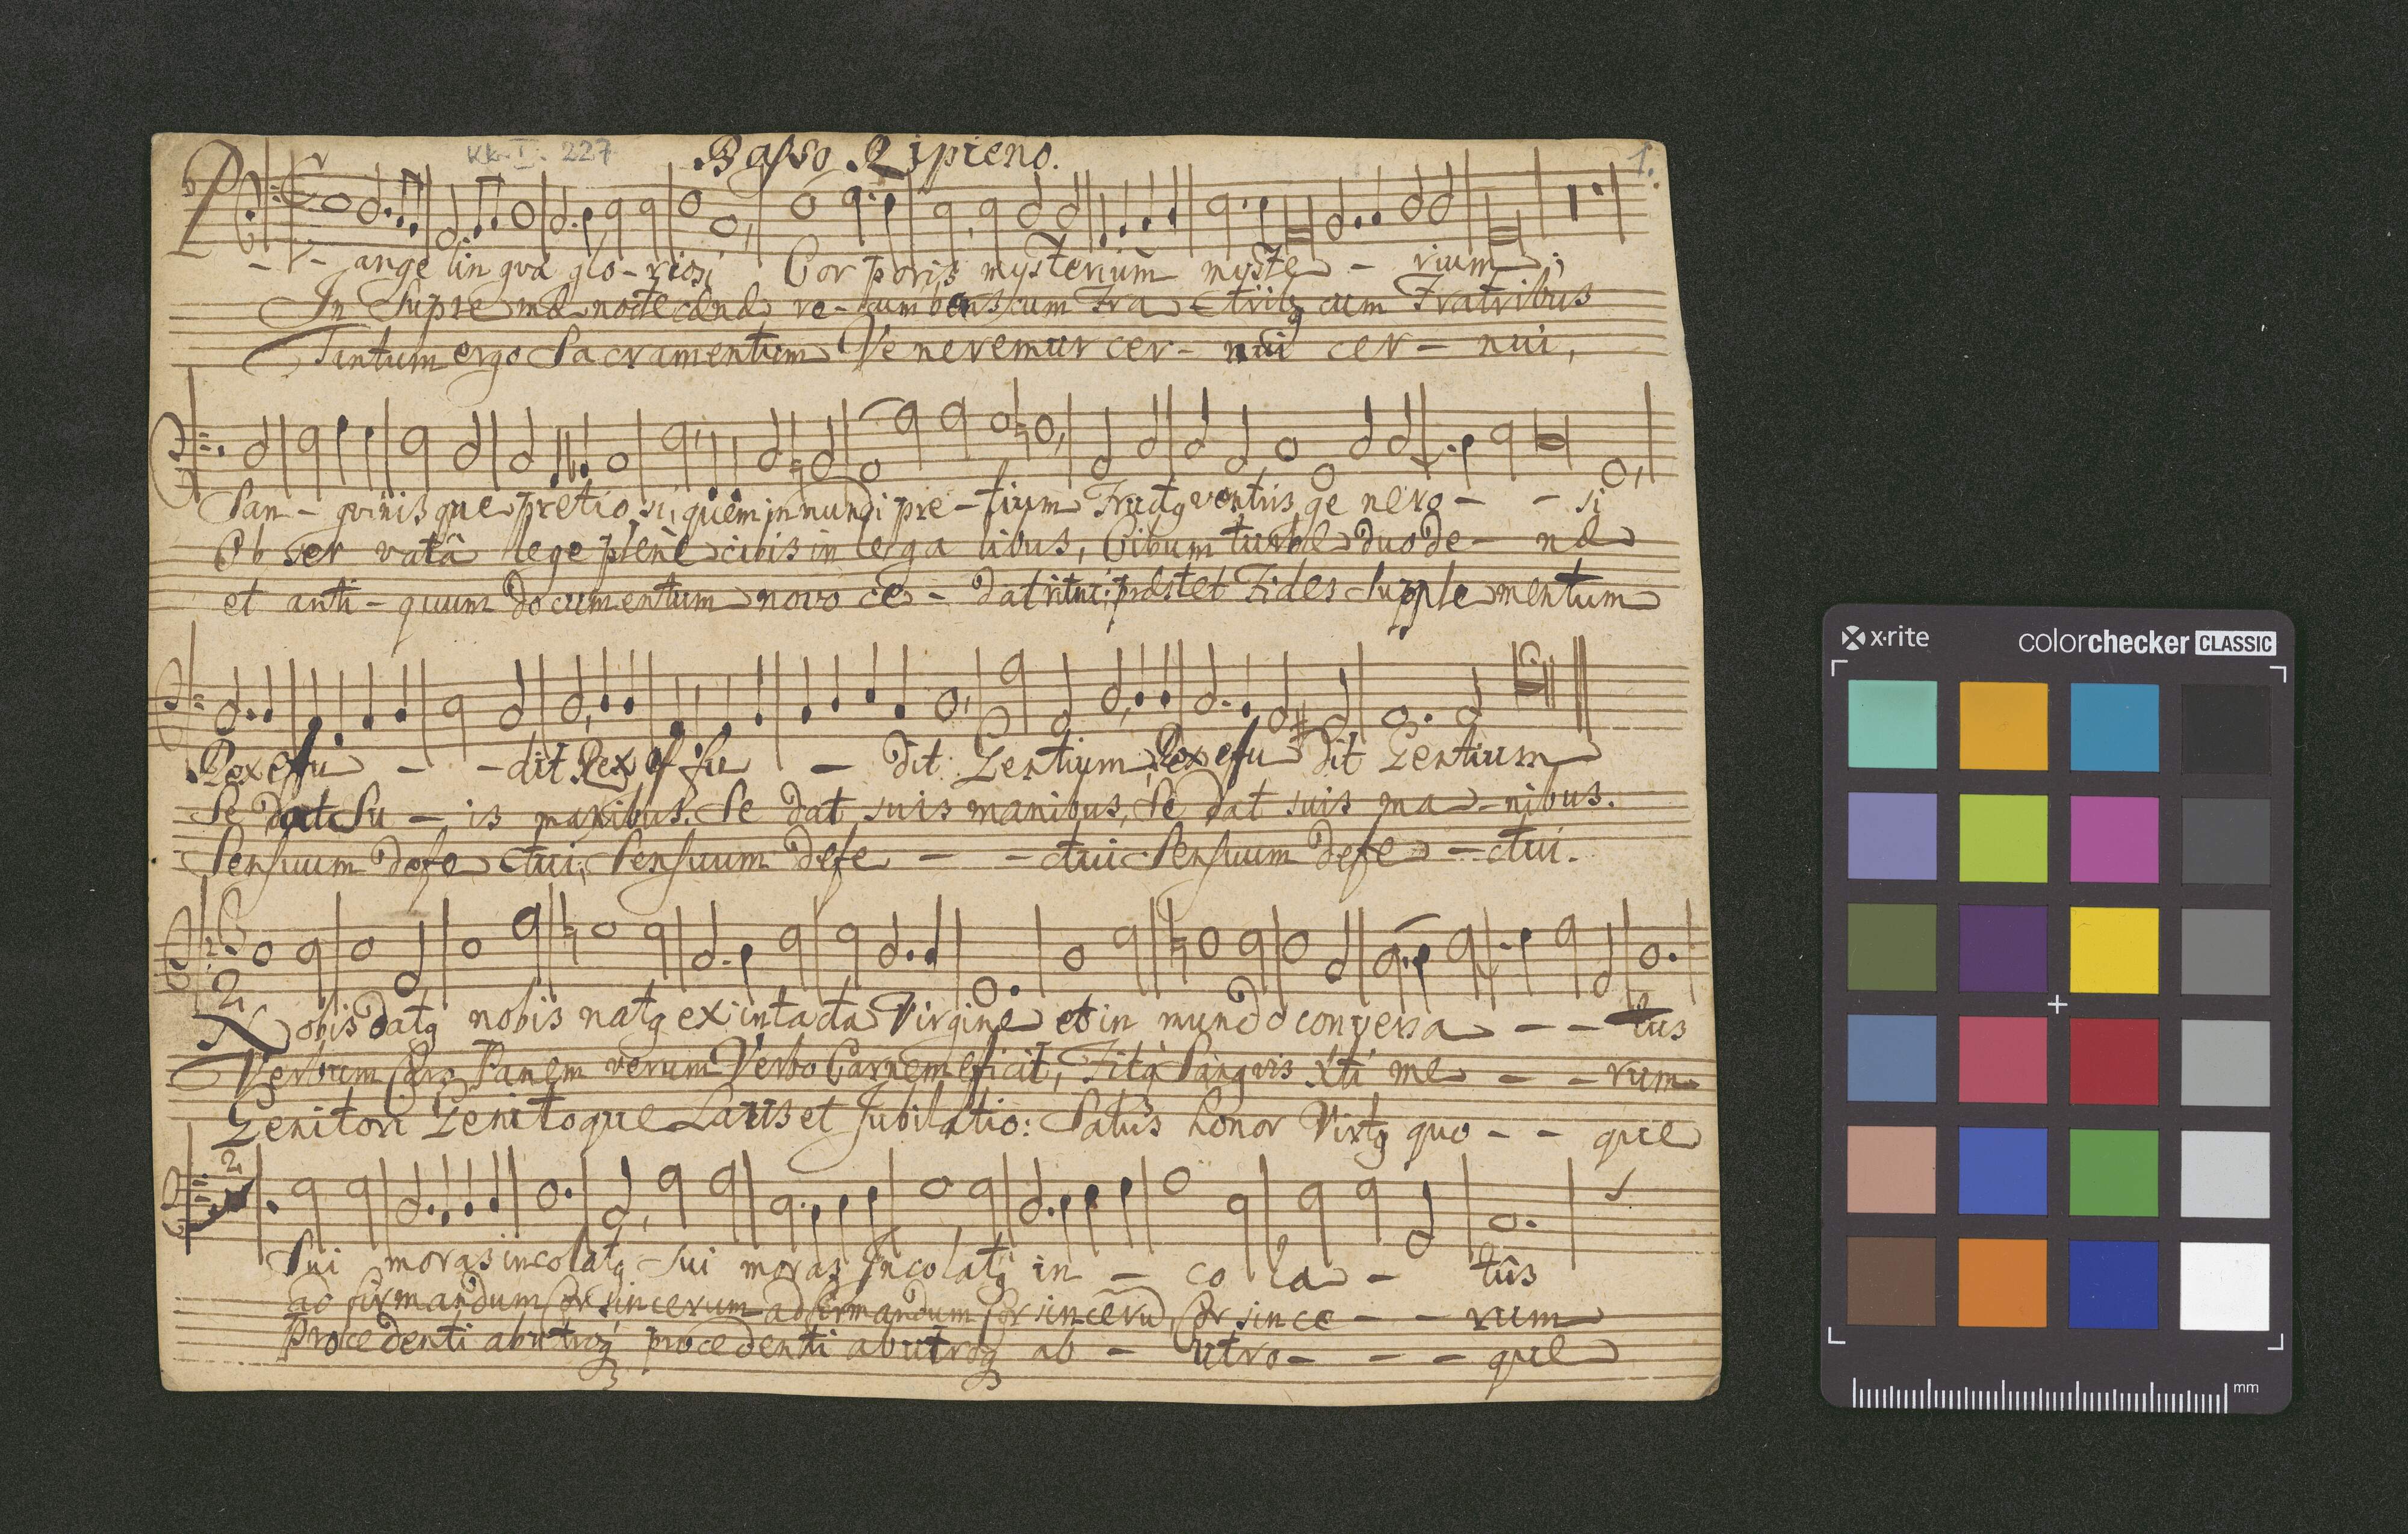 KK. I. 227
Basso Ripieno.
1.
P - ange lingva glo - riosi Corporis mysterium myste - rium;
In Supremæ nocte cænæ re - cumbens cum Fra - tribq cum Fratribus
Tantum ergo Sacramentum Veneremur cer - nui cer - nui,
San - gvinisque pretiosi, quem in mundi pre - tium Fructq ventris genero - - si
Observatâ lege plenè cibis in legalibus, Cibum turbæ duode - næ
et anti - quum documentum novo ce - dat ritui; præstet Fides Supplementum
Rex effu - - dit Rex effu - dit Gentium, Rex effu dit Gentium
Se dat Su - is manibus. Se dat suis manibus, Se dat suis ma - nibus.
Sensuum defectui, Sensuum defe - - ctui Sensuum defe - ctui.
Nobis datq nobis natq ex intacta Virgine et in mundo conversa - - tus
Verbum Caro Panem verum Verbo Carnem eficit, Fitq Sangvis xti me - - rum
Genitori Genitoque Laus et Jubilatio: Salus honor Virtq quo - - que
2
Sui moras incolatq sui moras Incolatq in - co la - tûs
ad firmandum Cor sincerum ad firmandum Cor sincerũ Cor since - - rum
Procedenti ab utroq procedenti ab utroq ab - utro - - - que
x-rite
colorchecker CLASSIC
mm